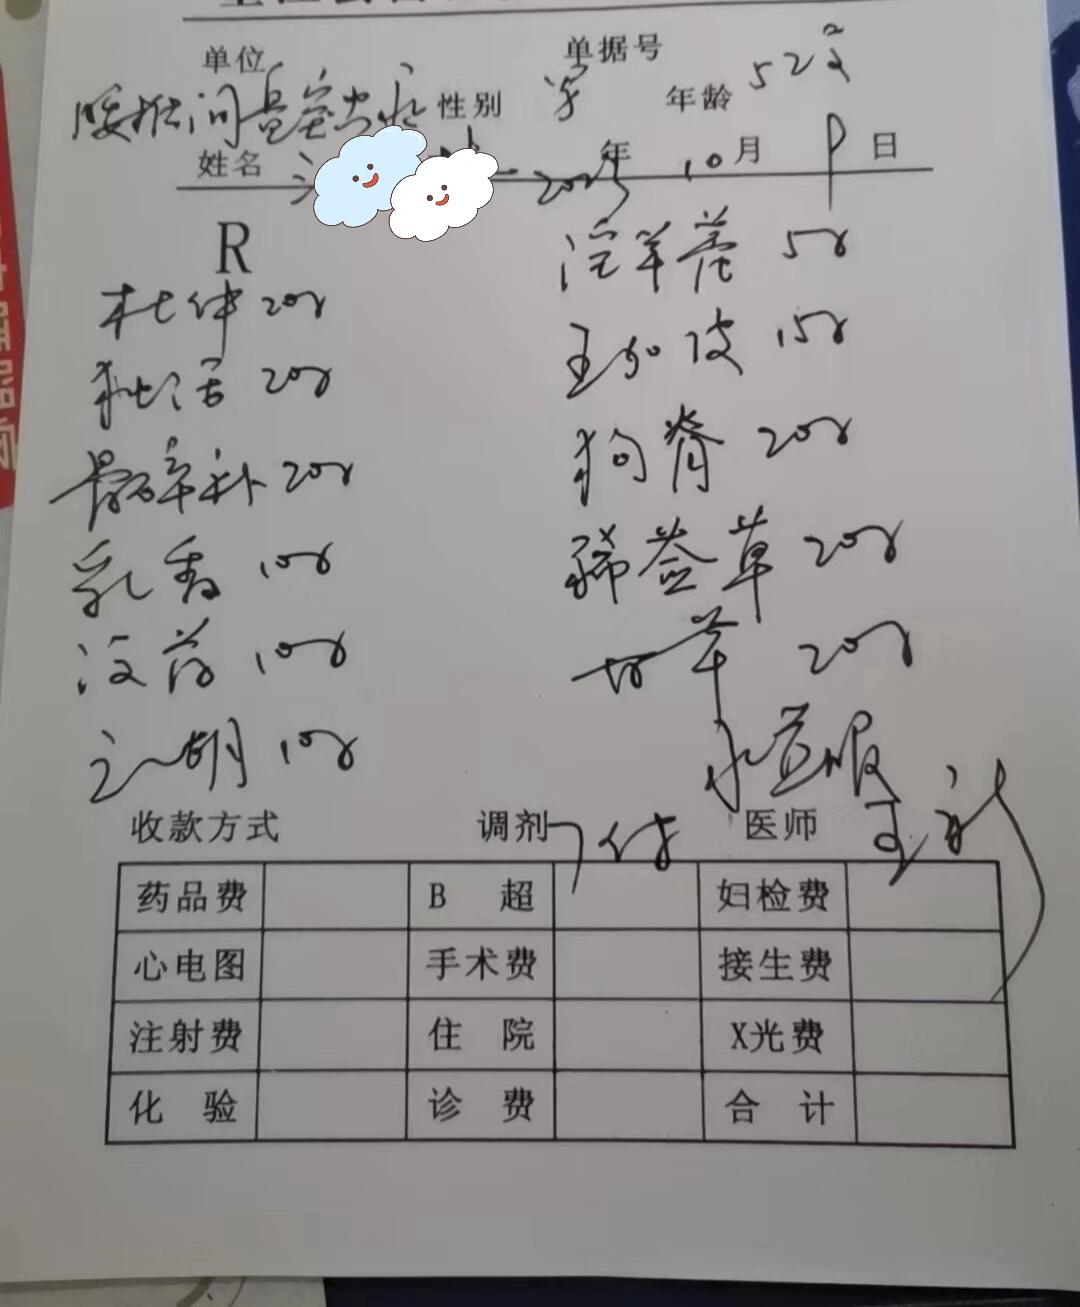 单位 单据号
腰椎间盘突出 性别 年龄 52岁
姓名 2025年 10月 9日
R
杜仲 20g 淫羊藿 50g
独活 20g 五加皮 15g
骨碎补 20g 狗脊 20g
乳香 10g 豨莶草 20g
没药 10g 甘草 20g
元胡 10g 水煎服
收款方式 调剂 7付 医师
药品费 B 超 妇检费
心电图 手术费 接生费
注射费 住 院 X光费
化 验 诊 费 合 计